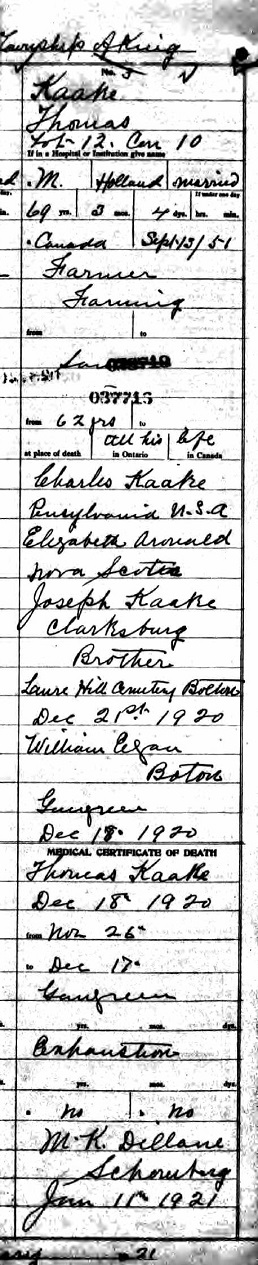 Township of King
No. 3
Kaake
Thomas
Lot 12. Con 10
If in a Hospital or Institution give name
M. Holland married
If under one day
69 yrs. 3 mos. 4 dys. hrs. min.
Canada Sept 13/51
Farmer
Farming
from to
037715
from 62 yrs to
all his life
at place of death in Ontario in Canada
Charles Kaake
Pensylvania U.S.A
Elizabeth
Nova Scotia
Joseph Kaake
Clarksburg
Brother
Laure Hill Cemetery Bolton
Dec 21st 1920
William Egan
Boton
Gangreen
Dec 18. 1920
MEDICAL CERTIFICATE OF DEATH
Thomas Kaake
Dec 18 1920
from Nov 26
to Dec 17.
Gangreen
yrs. mos. dys.
Exhaustion
yrs. mos. dys.
no no
M. K. Dillane
Schomberg
Jan 11th 1921
21